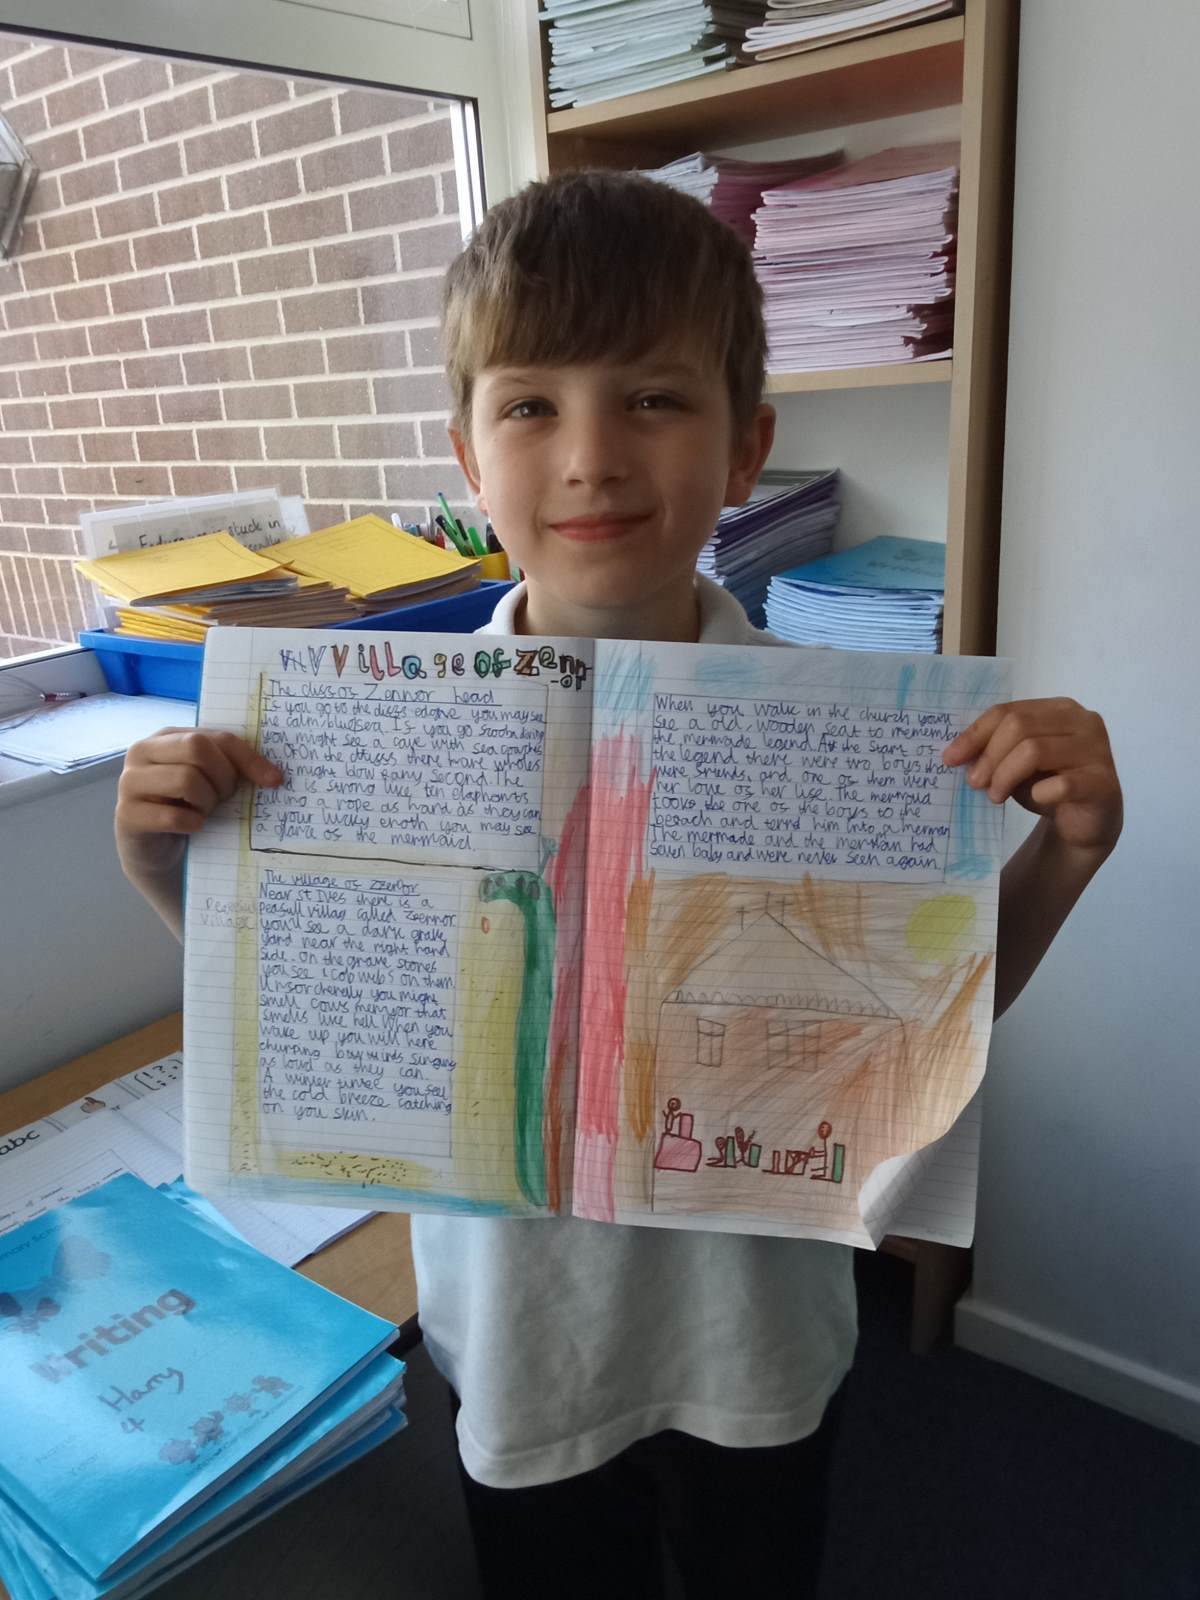 Village of Zenn
-or
The cliss os Zennor head
Is you go to the cliss edgne you may see
the calm blue sea. Is you go
you might see a cave with sea
in. On the there are wholes
might blow any second. The
is strong like ten elephants
a rope as hard as they can
Is your lucky enoth you may see
a glanze os the mermaid.
The village os zzennor
Near st Ives there is a
peasull villag called Zeennor
you'll see a dark grave
yard near the right hand
side. on the grave stones
you see cob webs on them.
you might
smell cows menyor that
smells like hell. When you
wake up you will here
churping singing
as loud as they can.
A winter you feel
the cold breeze catching
on you skin.
Village
When you walk in the church youll
see a old, wooden seat to remember
the mermade legend. At the start os
the legend there were two boys that
were sriends, and one os them were
her love os her lise. The
tooks the one os the boys to the
beach and ternd him into a merman
The mermade and the merman had
seven baby and were never seen again.
stuck in
abc
Writing
Harry
4
Name
Year